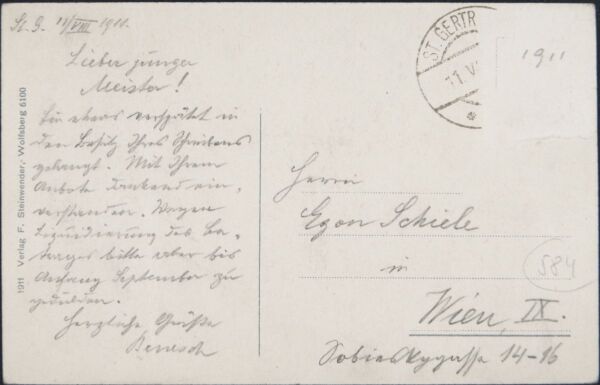 St. G. 11/VIII 1911.
Lieber junger
Meister!
Bin etwas verspätet in
den Besitz Ihres Schreibens
gelangt. Mit Ihrem
Anbote dankend ein-
verstanden. Wegen
Liquidierung des Be-
trages bitte aber bis
Anfang September zu
gedulden.
Herzliche Grüße
Benesch
1911 Verlag F. Steinwender, Wolfsberg 6100
ST. GERTR
11. V
1911
Herrn
Egon Schiele
in
Wien, IX.
Sobieskygasse 14-16
584